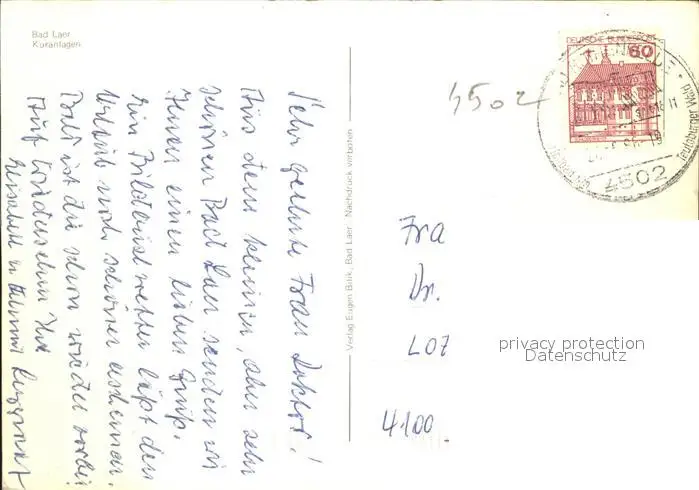 Bad Laer
Kuranlagen
Sehr geehrte Frau Doktor!
Aus dem kleinen, aber sehr
schönen Bad Laer senden wir
Ihnen einen lieben Gruß.
Ein Bilderbuchwetter läßt den
Urlaub noch schöner erscheinen.
Bald ist die schon wieder vorbei
Auf Wiedersehen Ihre
Helmut
Verlag Eugen Balk, Bad Laer · Nachdruck verboten
DEUTSCHE BUNDESPOST
60
4502
Teutoburger Wald
4502
Fra
Dr.
LOZ
4100
privacy protection
Datenschutz